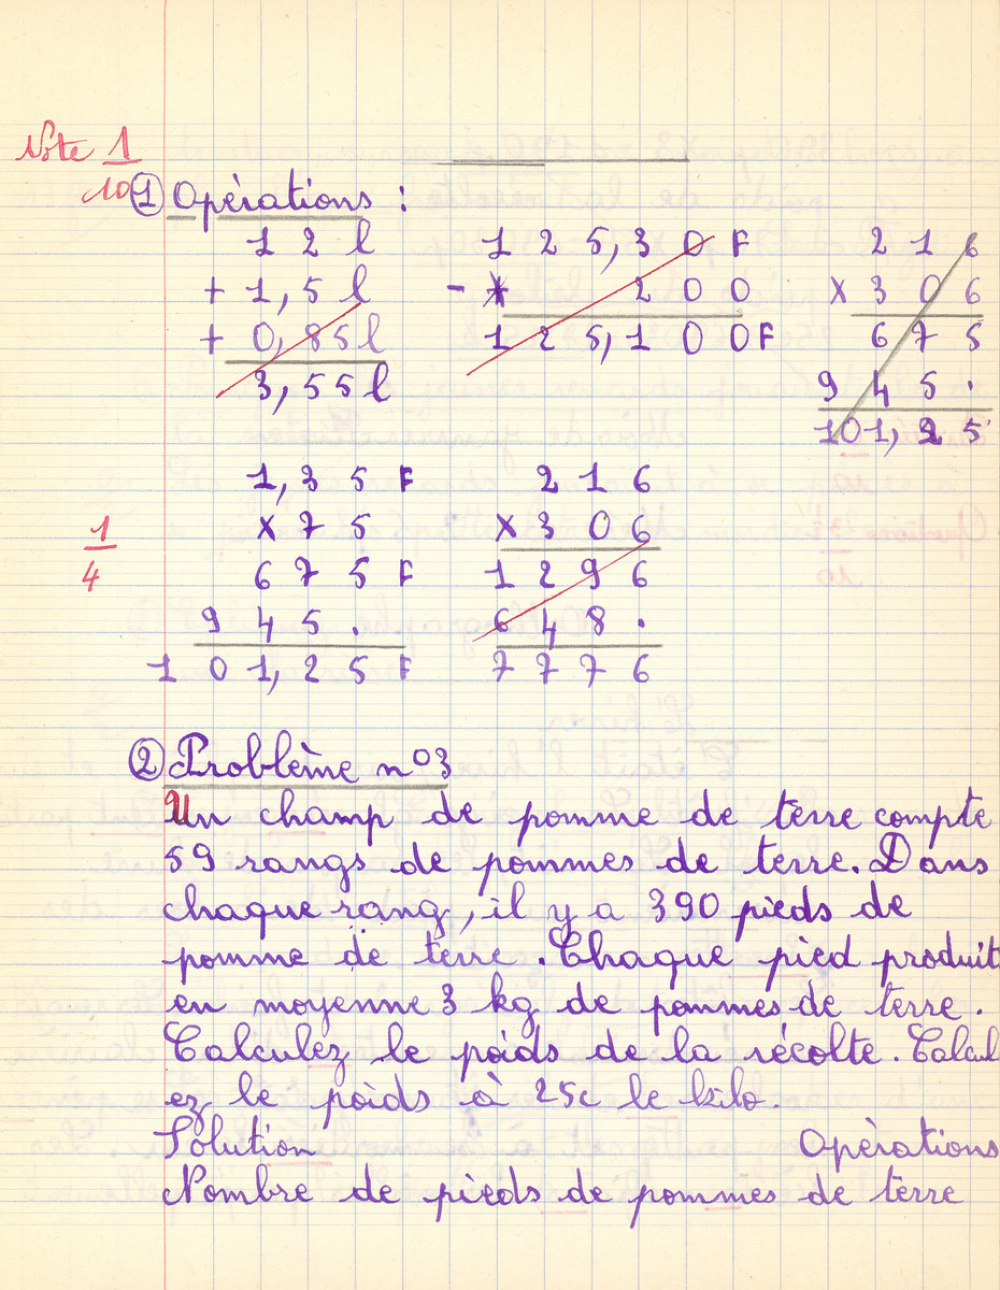 Note 1
10 ① Opérations :
1 2 l
+ 1,5 l
+ 0,85l
3,55l
1 2 5,3 0 F
- 2 0 0
1 2 5,1 0 0F
2 1 6
x 3 0 6
6 7 5
9 4 5 .
101,25
1
4
1,3 5 F
x 7 5
6 7 5 F
9 4 5 .
1 0 1,2 5 F
2 1 6
x 3 0 6
1 2 9 6
6 4 8 .
7 7 7 6
② Problème n°3
Un champ de pomme de terre compte
59 rangs de pommes de terre. Dans
chaque rang, il y a 390 pieds de
pomme de terre. Chaque pied produit
en moyenne 3 kg de pommes de terre.
Calculez le poids de la récolte. Calcul
ez le poids à 25c le kilo.
Solution Opérations
Nombre de pieds de pommes de terre